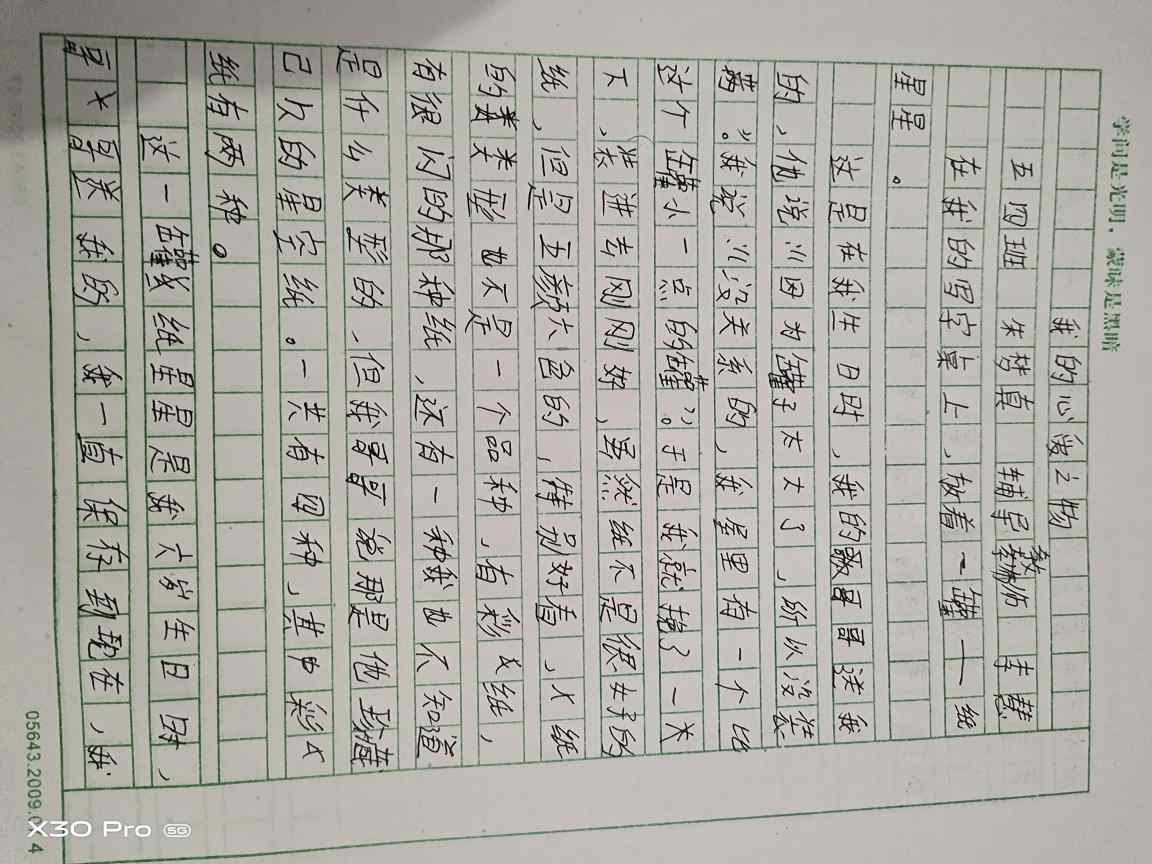 学问是光明，蒙昧是黑暗
我的心爱之物
五四班 朱梦真 辅导教师 李慧
在我的写字桌上，放着一罐——纸
星星。
这是在我生日时，我的哥哥送我
的，他说：“因为罐子太大了，所以没装
满。”我说：“没关系的，我屋里有一个比
这个罐小一点的罐”。于是我就挖了一大
下，装进去刚刚好，虽然纸不是很好的
纸，但是五颜六色的，特别好看，纸
的类型也不是一个品种，有彩纸，
有很闪的那种纸，还有一种我也不知道
是什么类型的，但我哥哥说那是他珍藏
已久的星空纸。一共有四种，其中彩
纸有两种。
这一罐纸星星是我六岁生日时，
哥送我的，我一直保存到现在，我
05643.2009.
X30 Pro 5G